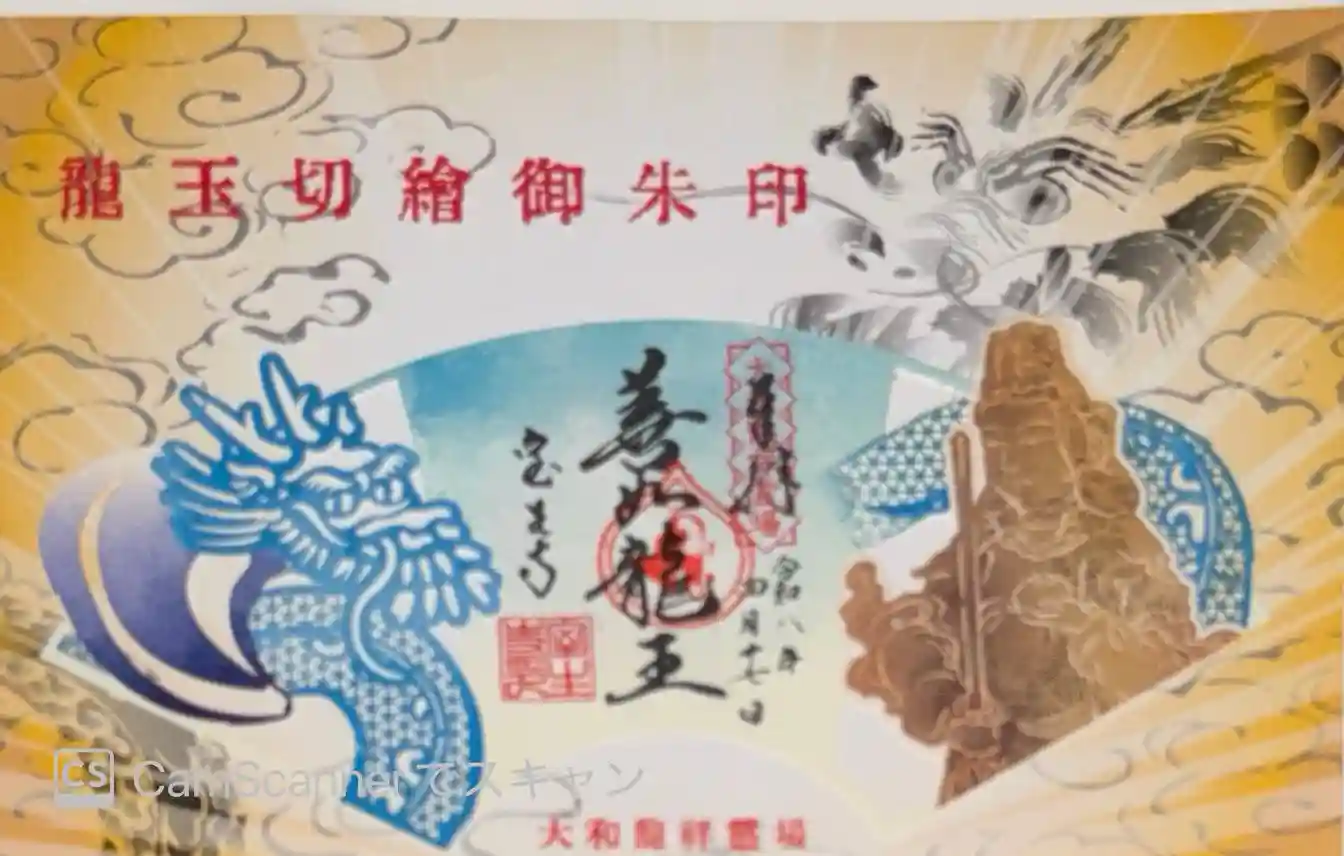 龍玉切繪御朱印
奉拝
令和八年
四月十七日
善如龍王
室生寺
CS CamScanner でスキャン
大和龍祥靈場